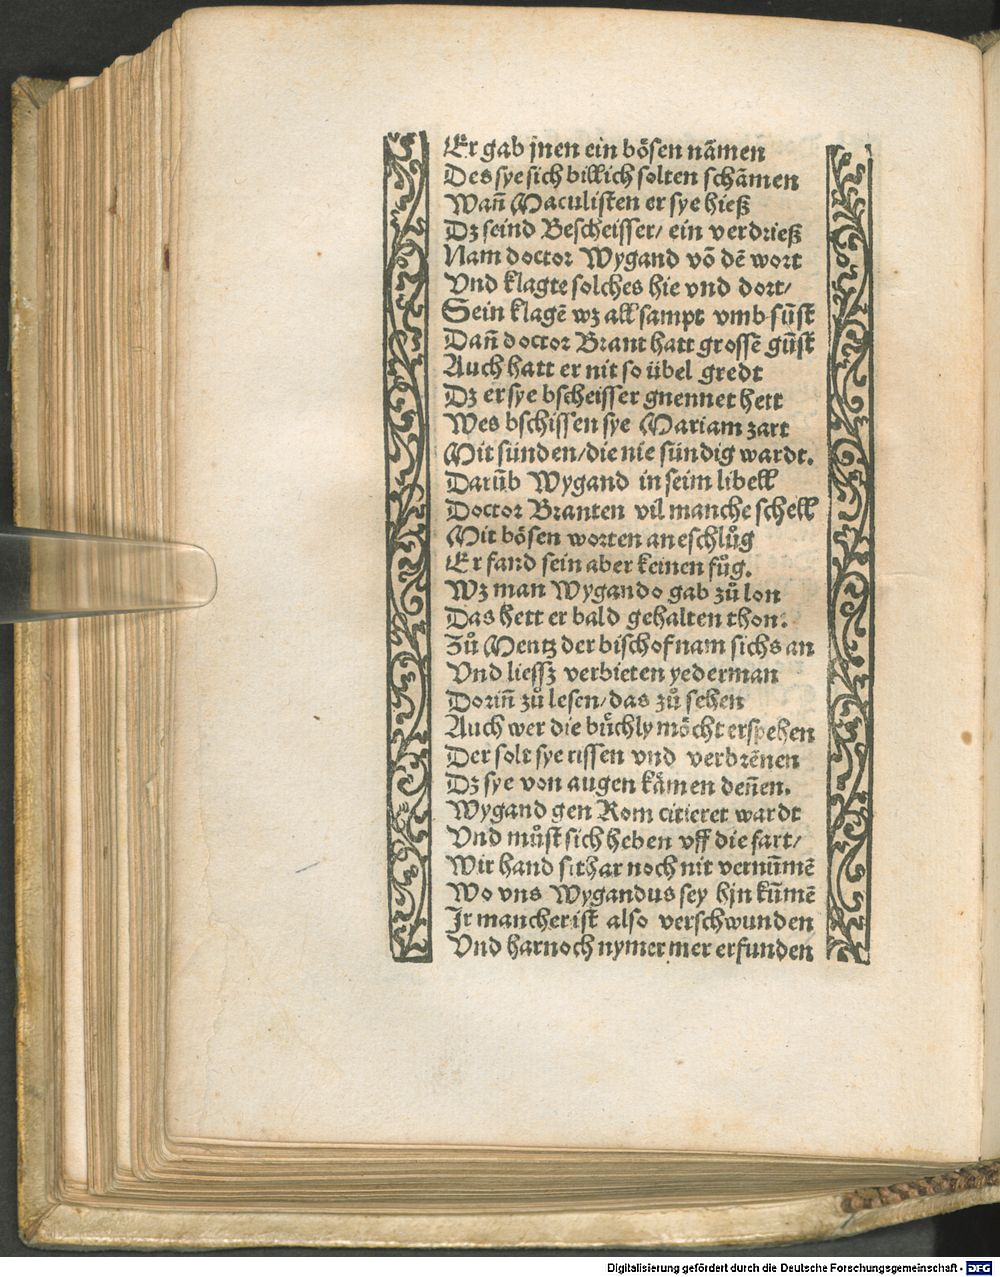 Er gab jnen ein bösen nãmen
Des sye sich billich solten schãmen
Wañ Maculisten er sye hieß
Dz seind Bescheisser/ ein verdrieß
Nam doctor Wygand võ dẽ wort
Vnd klagte solches hie vnd dort/
Sein klagẽ wz all sampt vmb sũst
Dañ doctor Brant hatt grossẽ gũst
Auch hatt er nit so übel gredt
Dz er sye bscheisser gnennet hett
Wes bschissen sye Mariam zart
Mit sünden/die nie sündig wardt.
Darũb Wygand in seim libell
Doctor Branten vil manche schell
Mit bösen worten aneschlůg
Er fand sein aber keinen fůg.
Wz man Wygando gab zů lon
Das hett er bald gehalten thon.
Zů Mentz der bischof nam sichs an
Vnd liessz verbieten yederman
Doriñ zů lesen/das zů sehen
Auch wer die bůchly möcht erspehen
Der solt sye rissen vnd verbrẽnen
Dz sye von augen kåmen deñen.
Wygand gen Rom citieret wardt
Vnd můst sich heben vff die fart/
Wir hand sithar noch nit vernũmẽ
Wo vns Wygandus sey hjn kũmẽ
Jr mancher ist also verschwunden
Vnd harnoch nymer mer erfunden
Digitalisierung gefördert durch die Deutsche Forschungsgemeinschaft - DFG